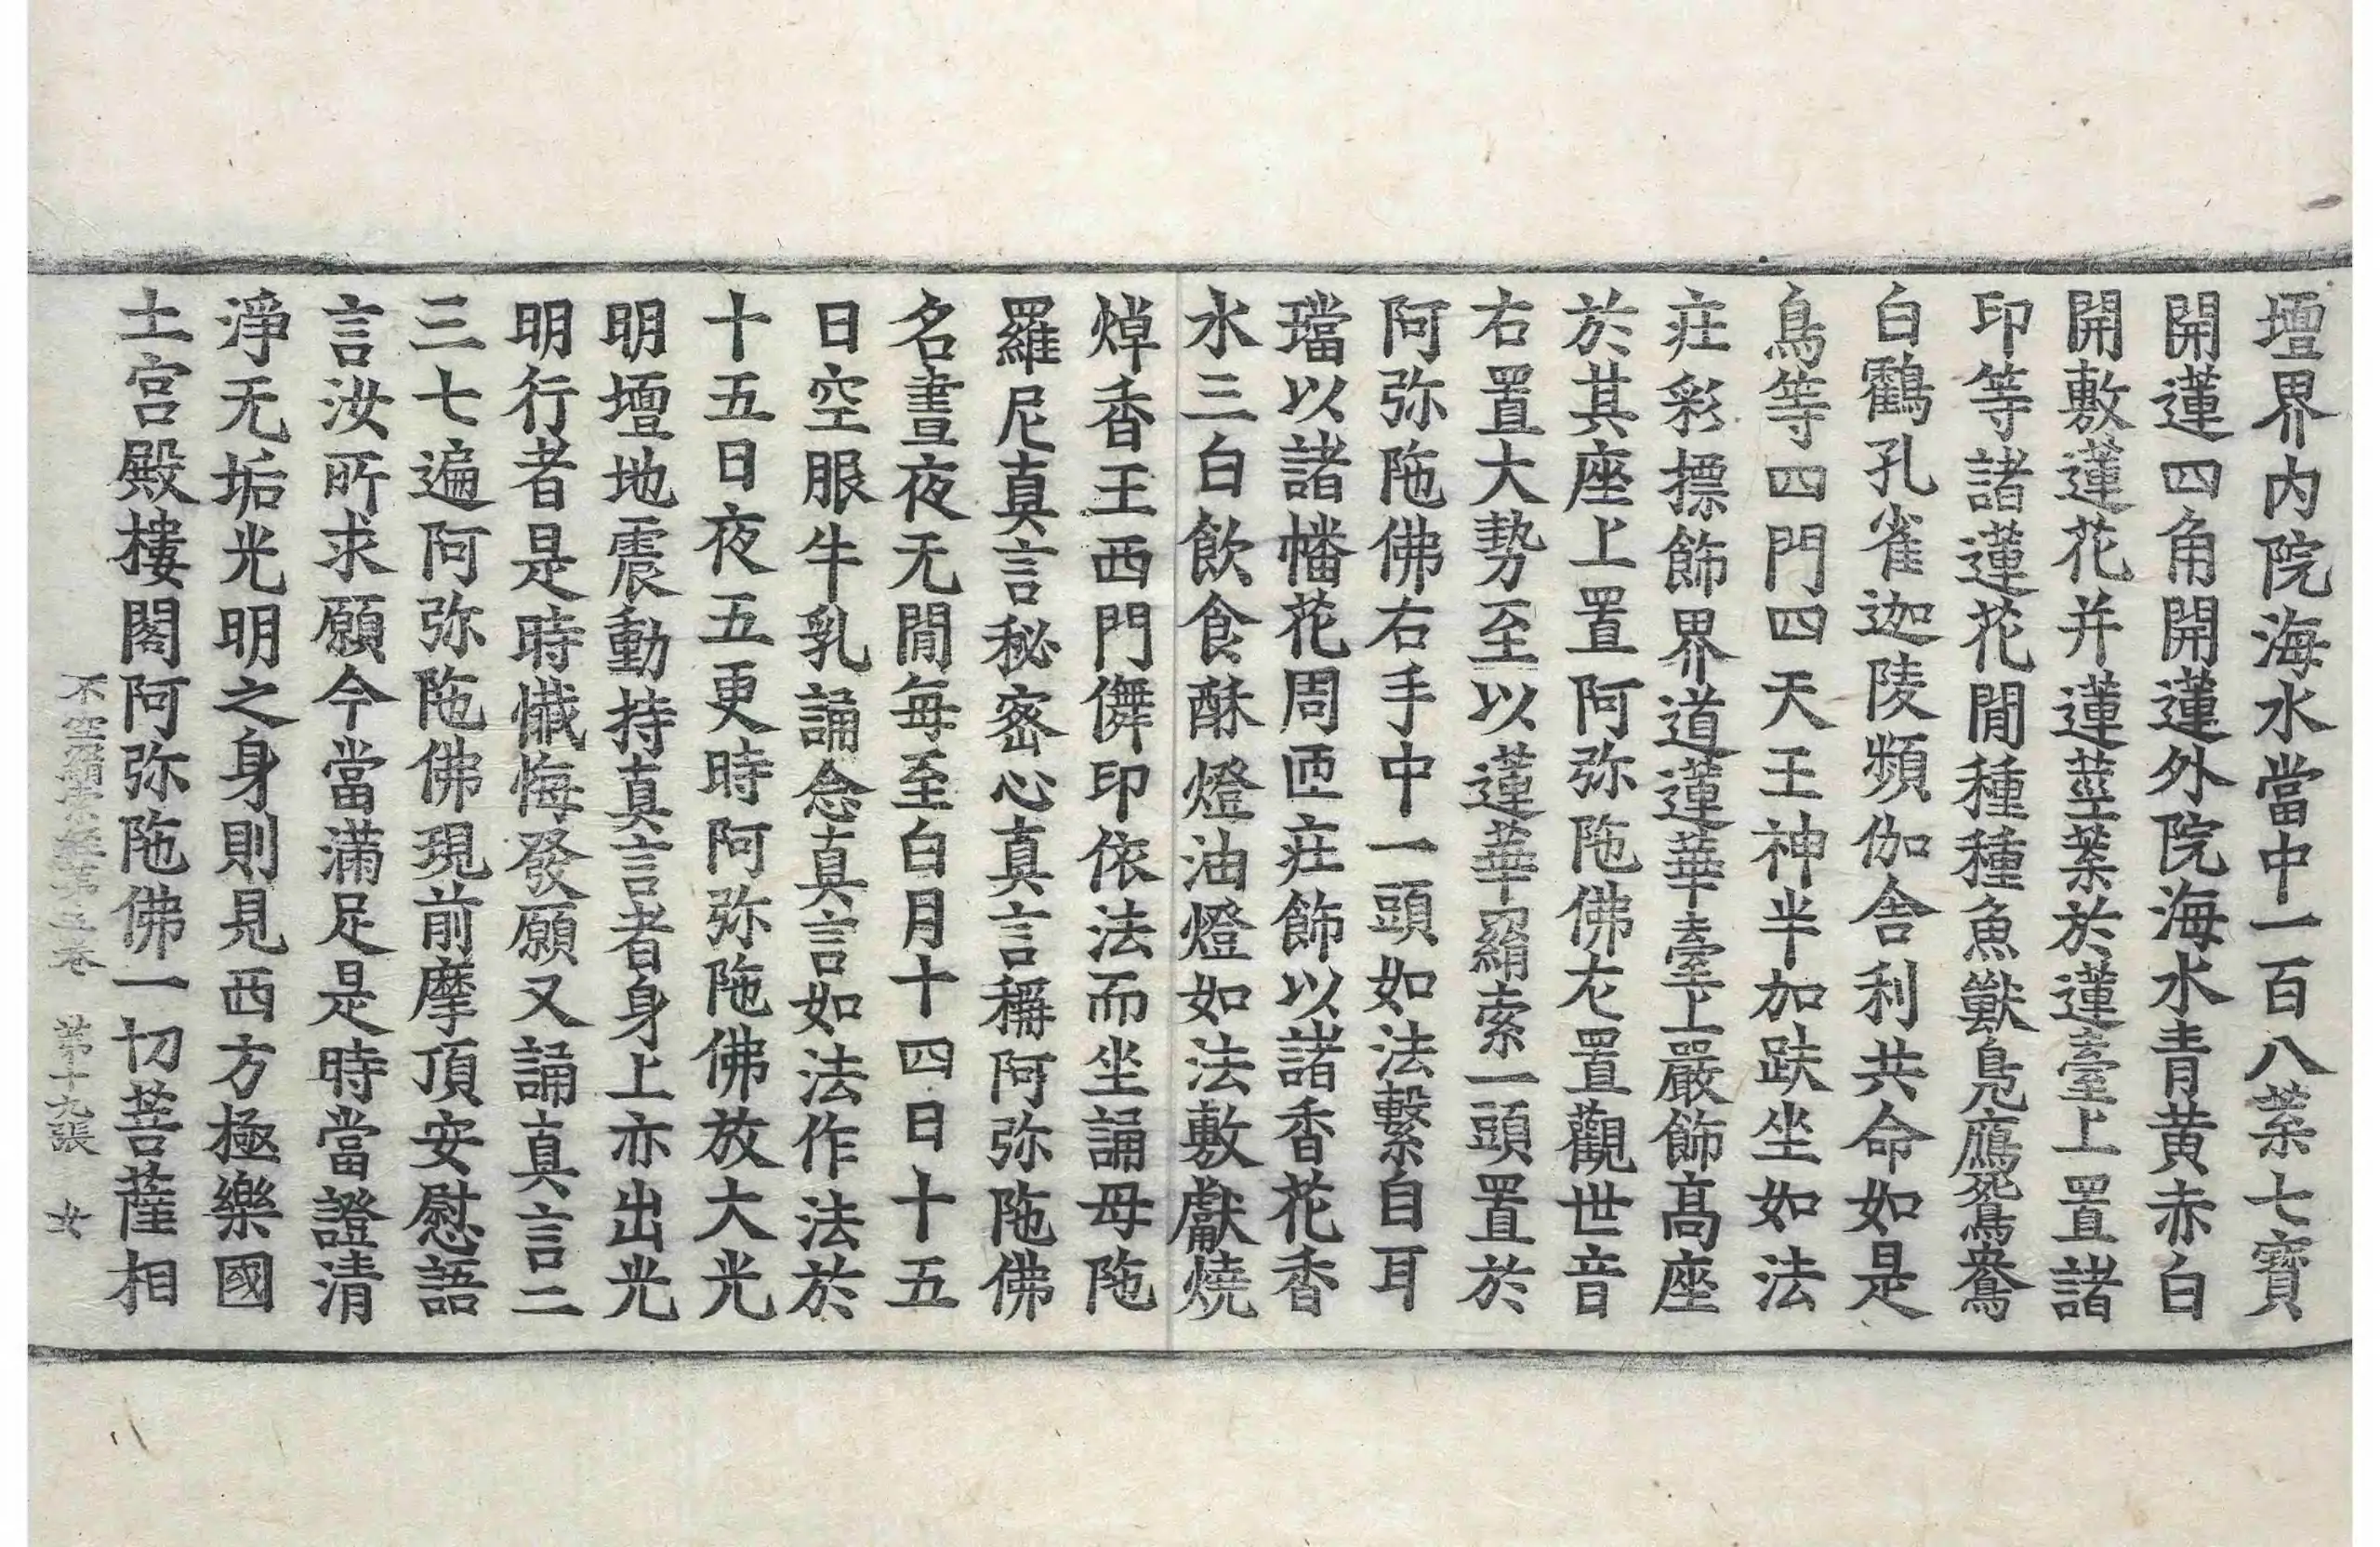 壇界内院海水當中一百八葉七寶
開蓮四角開蓮外院海水青黄赤白
開敷蓮花并蓮莖葉於蓮臺上置諸
印等諸蓮花閒種種魚獸鳧鴈鴛鴦
白鶴孔雀迦陵頻伽舍利共命如是
鳥等四門四天王神半加趺坐如法
莊彩摽飾界道蓮華臺上嚴飾髙座
於其座上置阿弥陁佛左置觀世音
右置大勢至以蓮華羂索一頭置於
阿弥陁佛右手中一頭如法繫自耳
璫以諸幡花周匝莊飾以諸香花香
水三白飲食酥燈油燈如法敷獻燒
焯香王西門儛印依法而坐誦母陁
羅尼真言秘密心真言稱阿弥陁佛
名晝夜无閒每至白月十四日十五
日空服牛乳誦念真言如法作法於
十五日夜五更時阿弥陁佛放大光
明壇地震動持真言者身上亦出光
明行者是時懺悔發願又誦真言二
三七遍阿弥陁佛現前摩頂安慰語
言汝所求願今當滿足是時當證清
淨无垢光明之身則見西方極樂國
土宮殿樓閣阿弥陁佛一切菩薩相
不空羂索經第五卷 第十九張 女